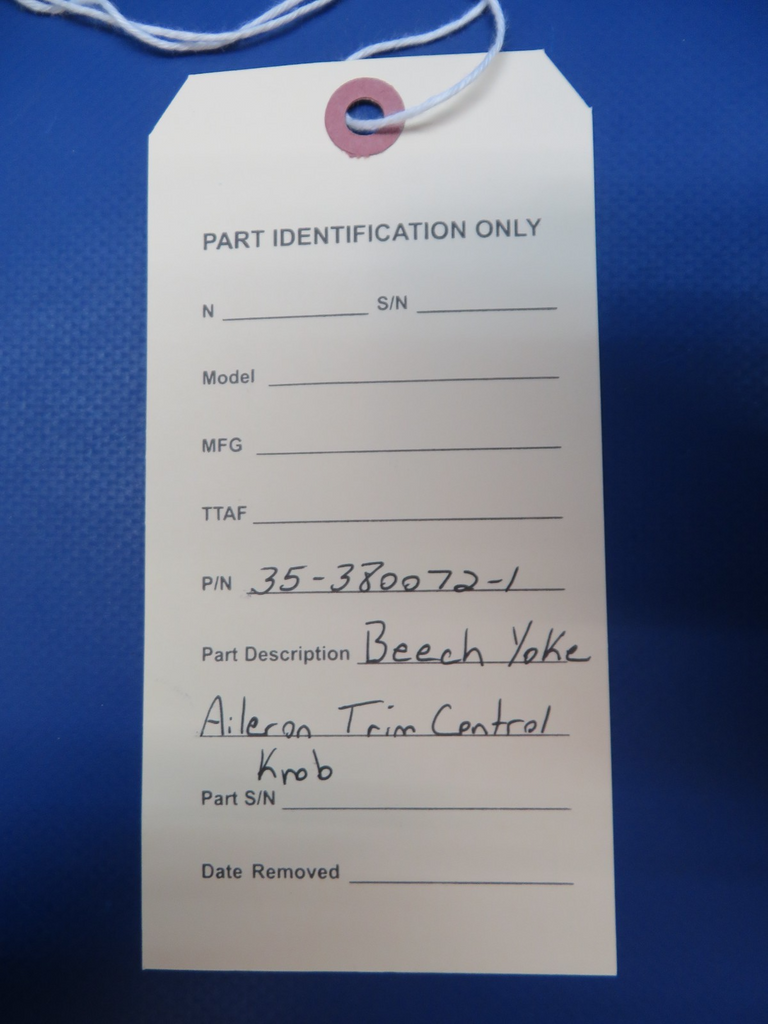 PART IDENTIFICATION ONLY
N S/N
Model
MFG
TTAF
P/N 35-380072-1
Part Description Beech Yoke
Aileron Trim Control
Knob
Part S/N
Date Removed